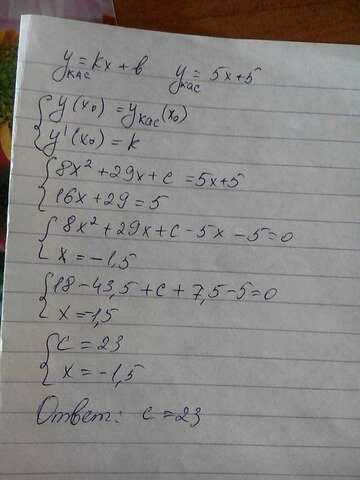 y кас = kx + b   y кас = 5x+5
{ y(x₀) = y кас (x₀)
y'(x₀) = k
{ 8x² + 29x + c = 5x+5
16x + 29 = 5
{ 8x² + 29x + c - 5x - 5 = 0
x = -1,5
{ 18 - 43,5 + c + 7,5 - 5 = 0
x = -1,5
{ c = 23
x = -1,5
Ответ: c = 23